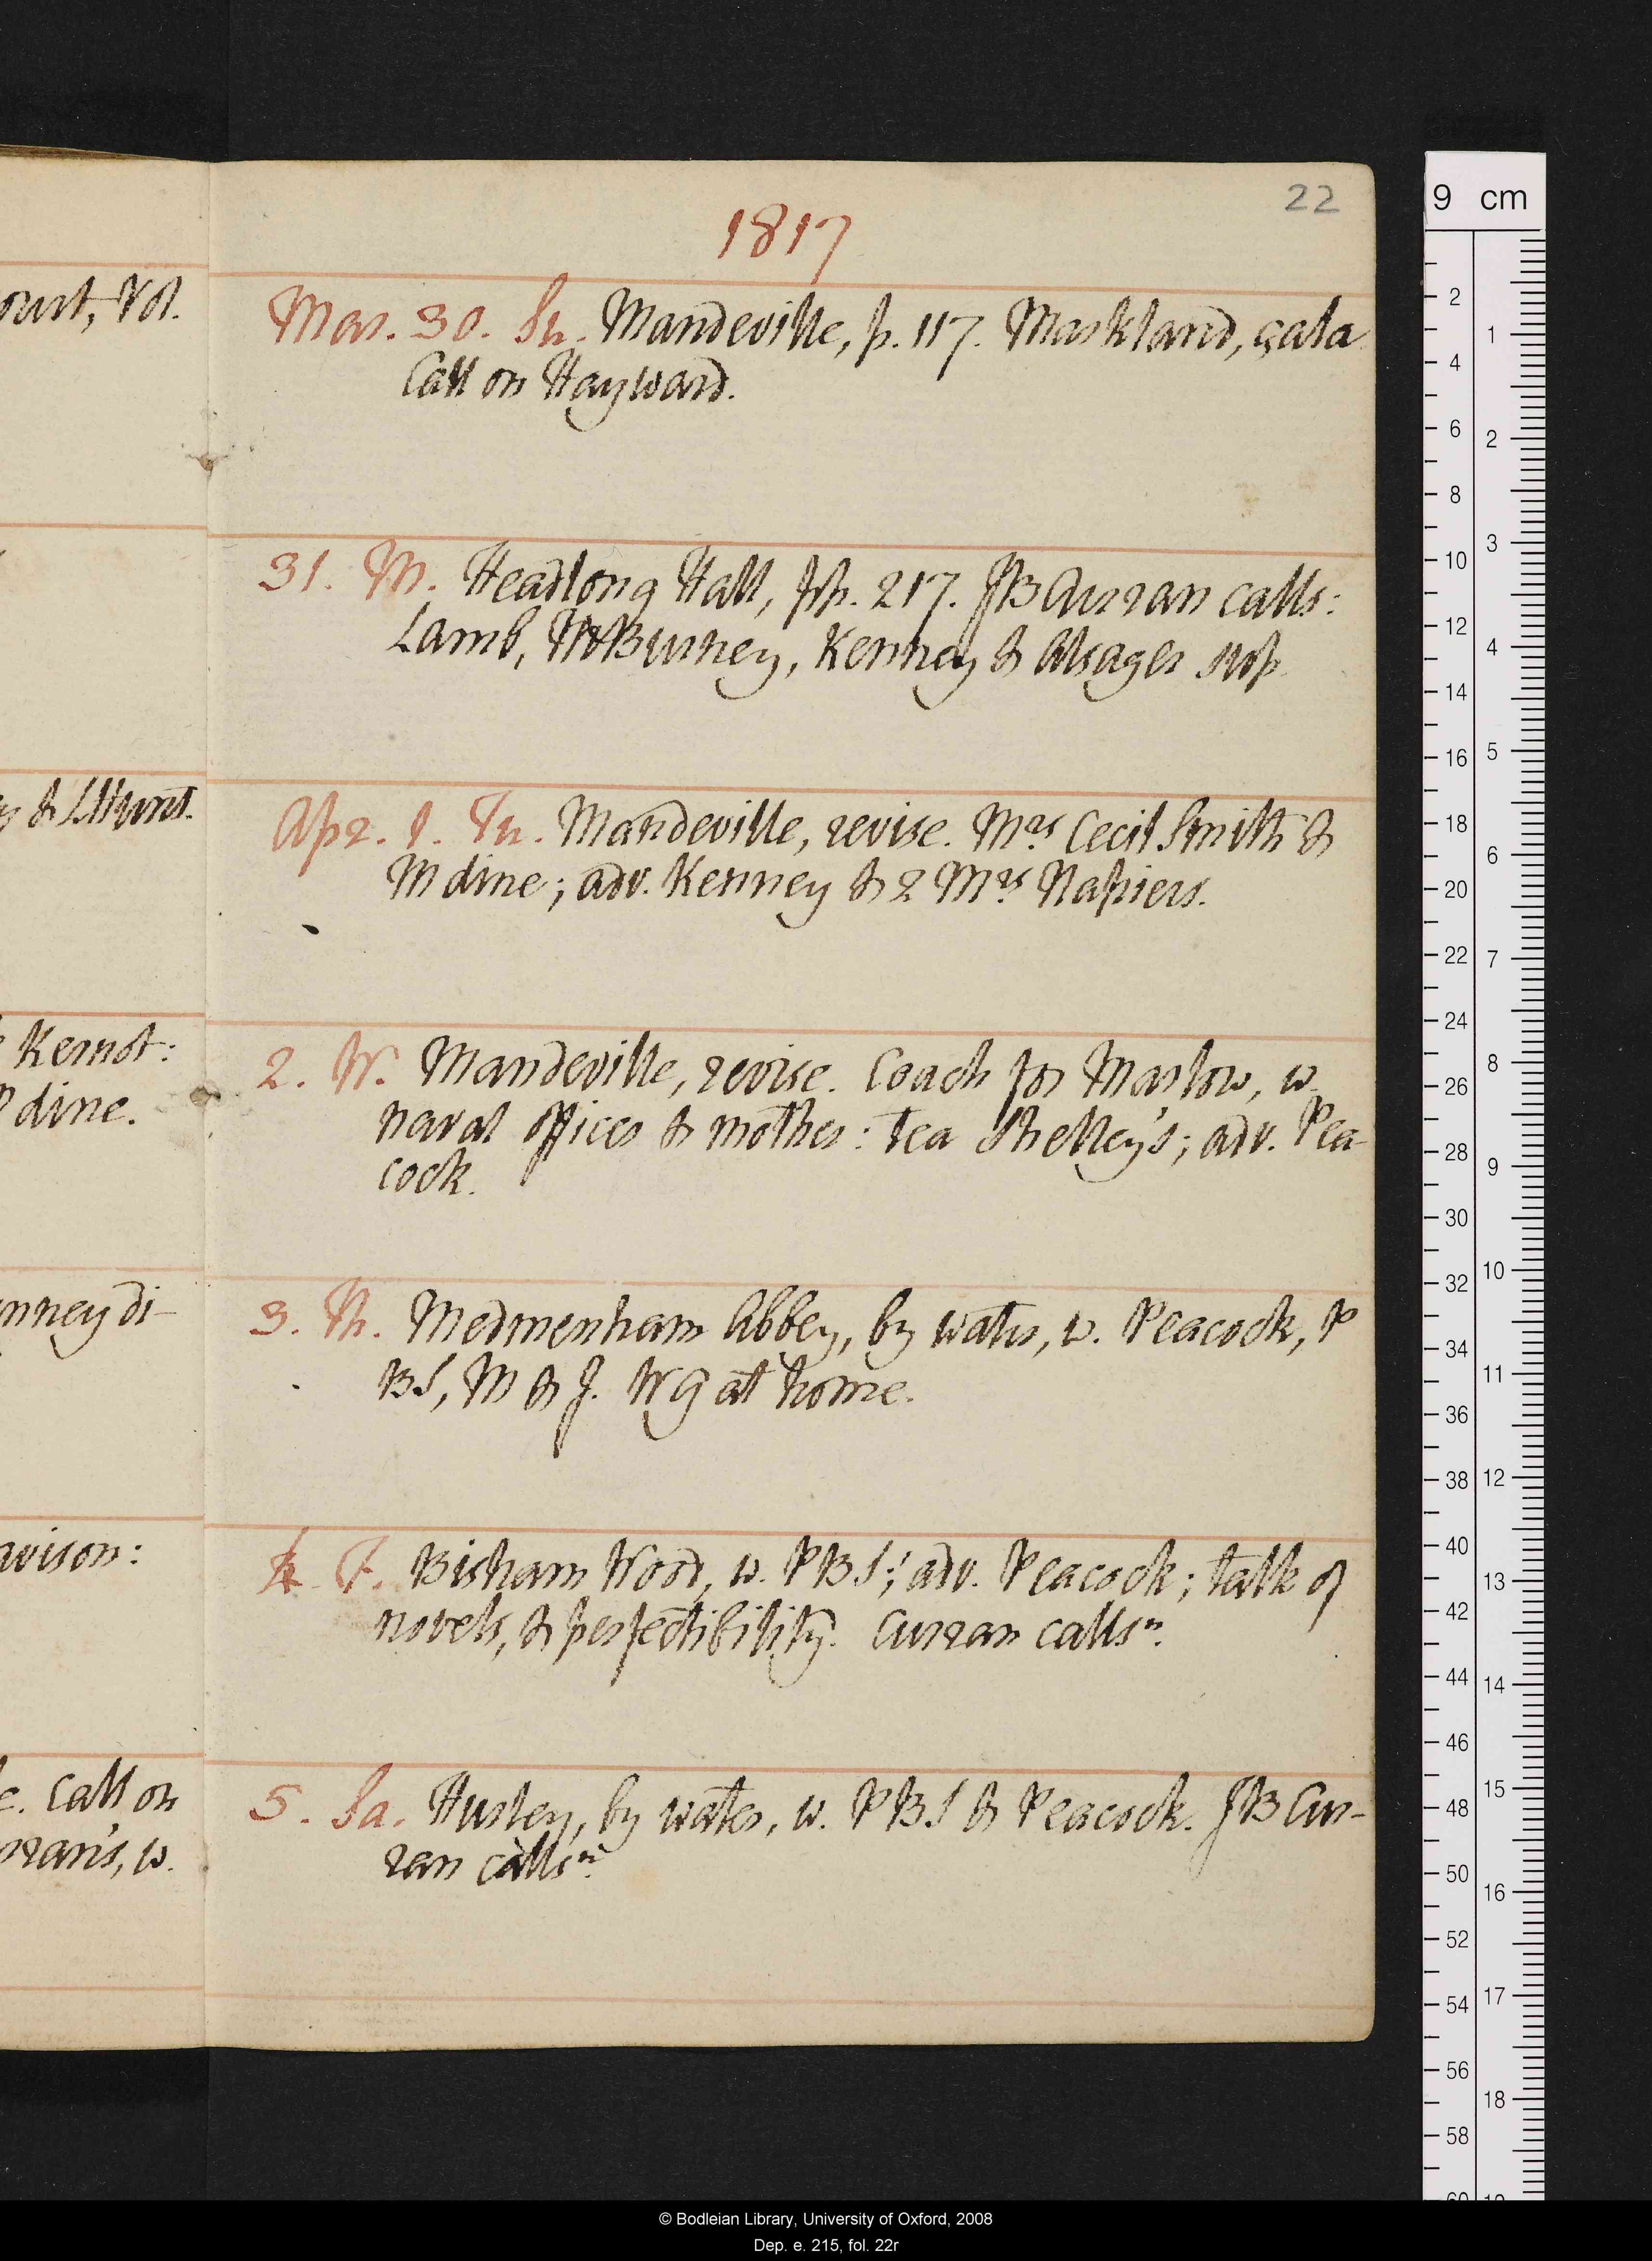 22
1817
ourt, Vol.
Mar. 30. Su. Mandeville, p. 117. Markland, çala
Call on Hayward.
31. M. Headlong Hall, pp. 217. JB Curran calls:
Lamb, MBurney, Kenney & Alsager sup.
& LHunt.
Apr. 1. Tu. Mandeville, revise. Mrs Cecil Smith &
M dine; adv. Kenney & 2 Mrs Napiers.
Kernot:
dine.
2. W. Mandeville, revise. Coach for Marlow, w.
naval officer & mother: tea Shelley's; adv. Pea-
cock.
nney di-
3. Th. Medmenham Abbey, by water, w. Peacock, P
BS, M & J. WG at home.
avison:
4. F. Bisham Wood, w. PBS; adv. Peacock; talk of
novels, & perfectibility. Curran callsn.
Call on
rran's, w.
5. Sa. Hurley, by water, w. PBS & Peacock. JB Cur-
ran callsn.
9 cm
2
4
6
8
10
12
14
16
18
20
22
24
26
28
30
32
34
36
38
40
42
44
46
48
50
52
54
56
58
1
2
3
4
5
6
7
8
9
10
11
12
13
14
15
16
17
18
© Bodleian Library, University of Oxford, 2008
Dep. e. 215, fol. 22r